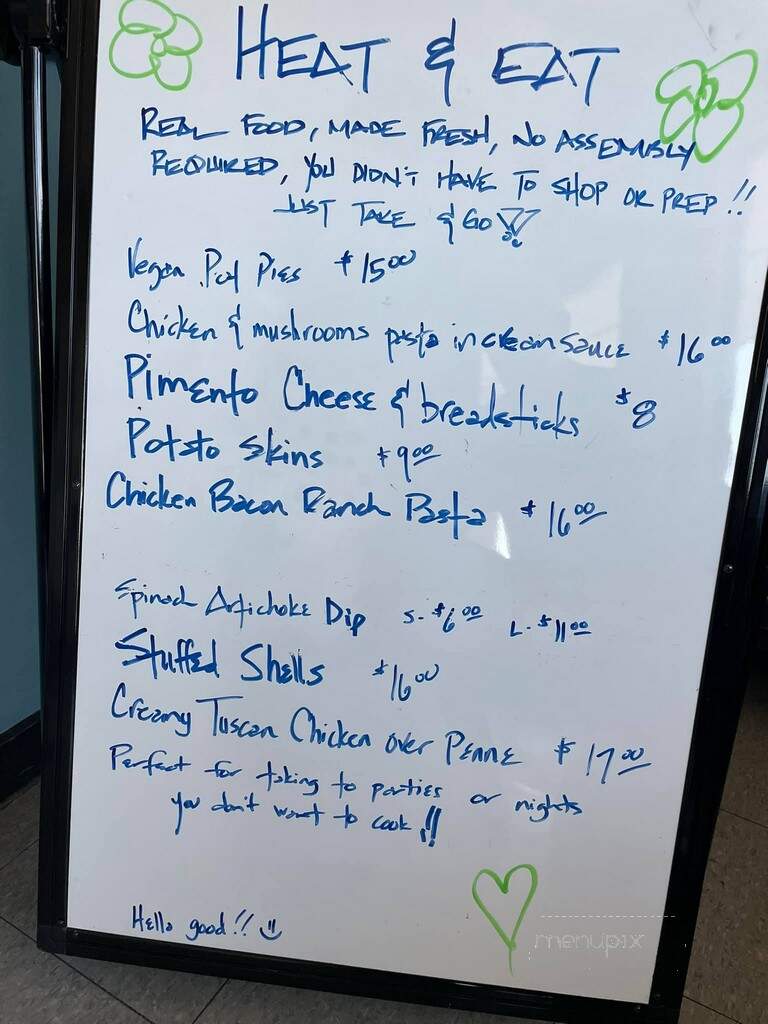 HEAT & EAT
REAL FOOD, MADE FRESH, NO ASSEMBLY
REQUIRED, YOU DIDN'T HAVE TO SHOP OR PREP!!
JUST TAKE & GO!!
Vegan Pot Pies $15.00
Chicken & mushrooms pasta in cream sauce $16.00
Pimento Cheese & breadsticks $8
Potato skins $9.00
Chicken Bacon Ranch Pasta $16.00
Spinach Artichoke Dip S-$6.00 L-$11.00
Stuffed Shells $16.00
Creamy Tuscan Chicken over Penne $17.00
Perfect for taking to parties or nights
you don't want to cook!!
Hella good!!
menupix